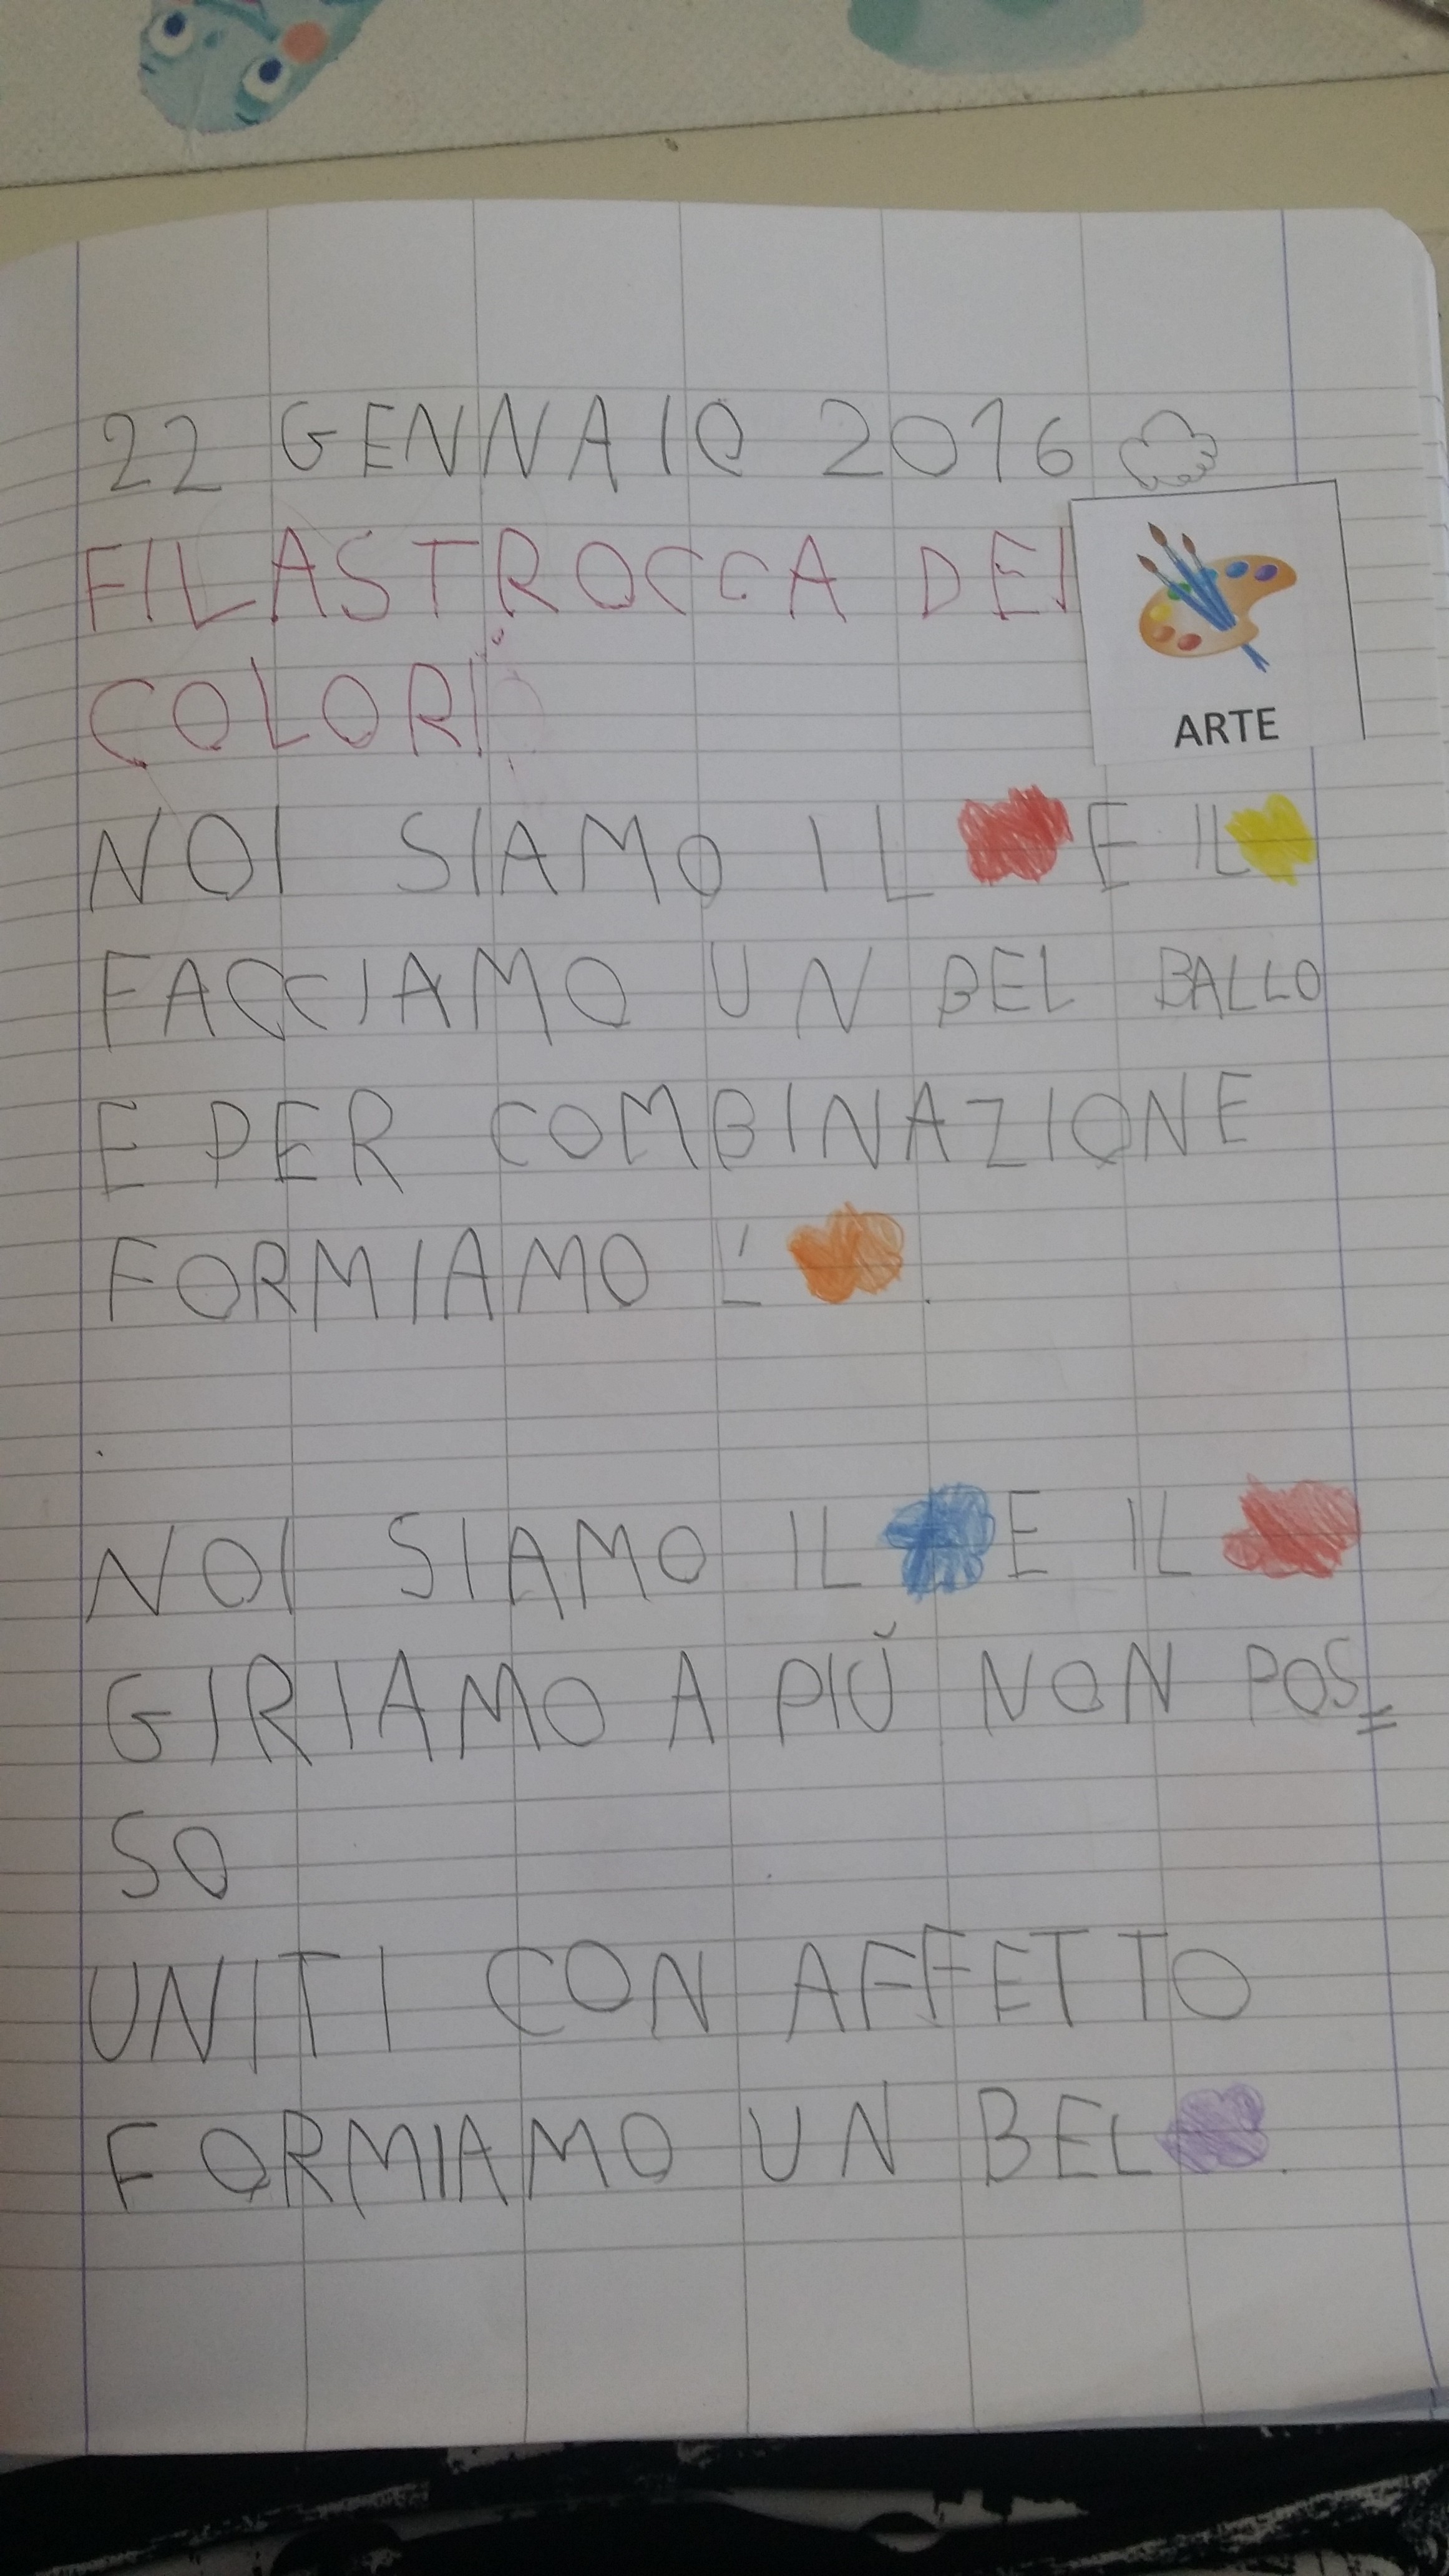 22 GENNAIO 2016
FILASTROCCA DEI
COLORI
ARTE
NOI SIAMO IL E IL
FACCIAMO UN BEL BALLO
E PER COMBINAZIONE
FORMIAMO L' .
NOI SIAMO IL E IL
GIRIAMO A PIÙ NON POS=
SO
UNITI CON AFFETTO
FORMIAMO UN BEL .